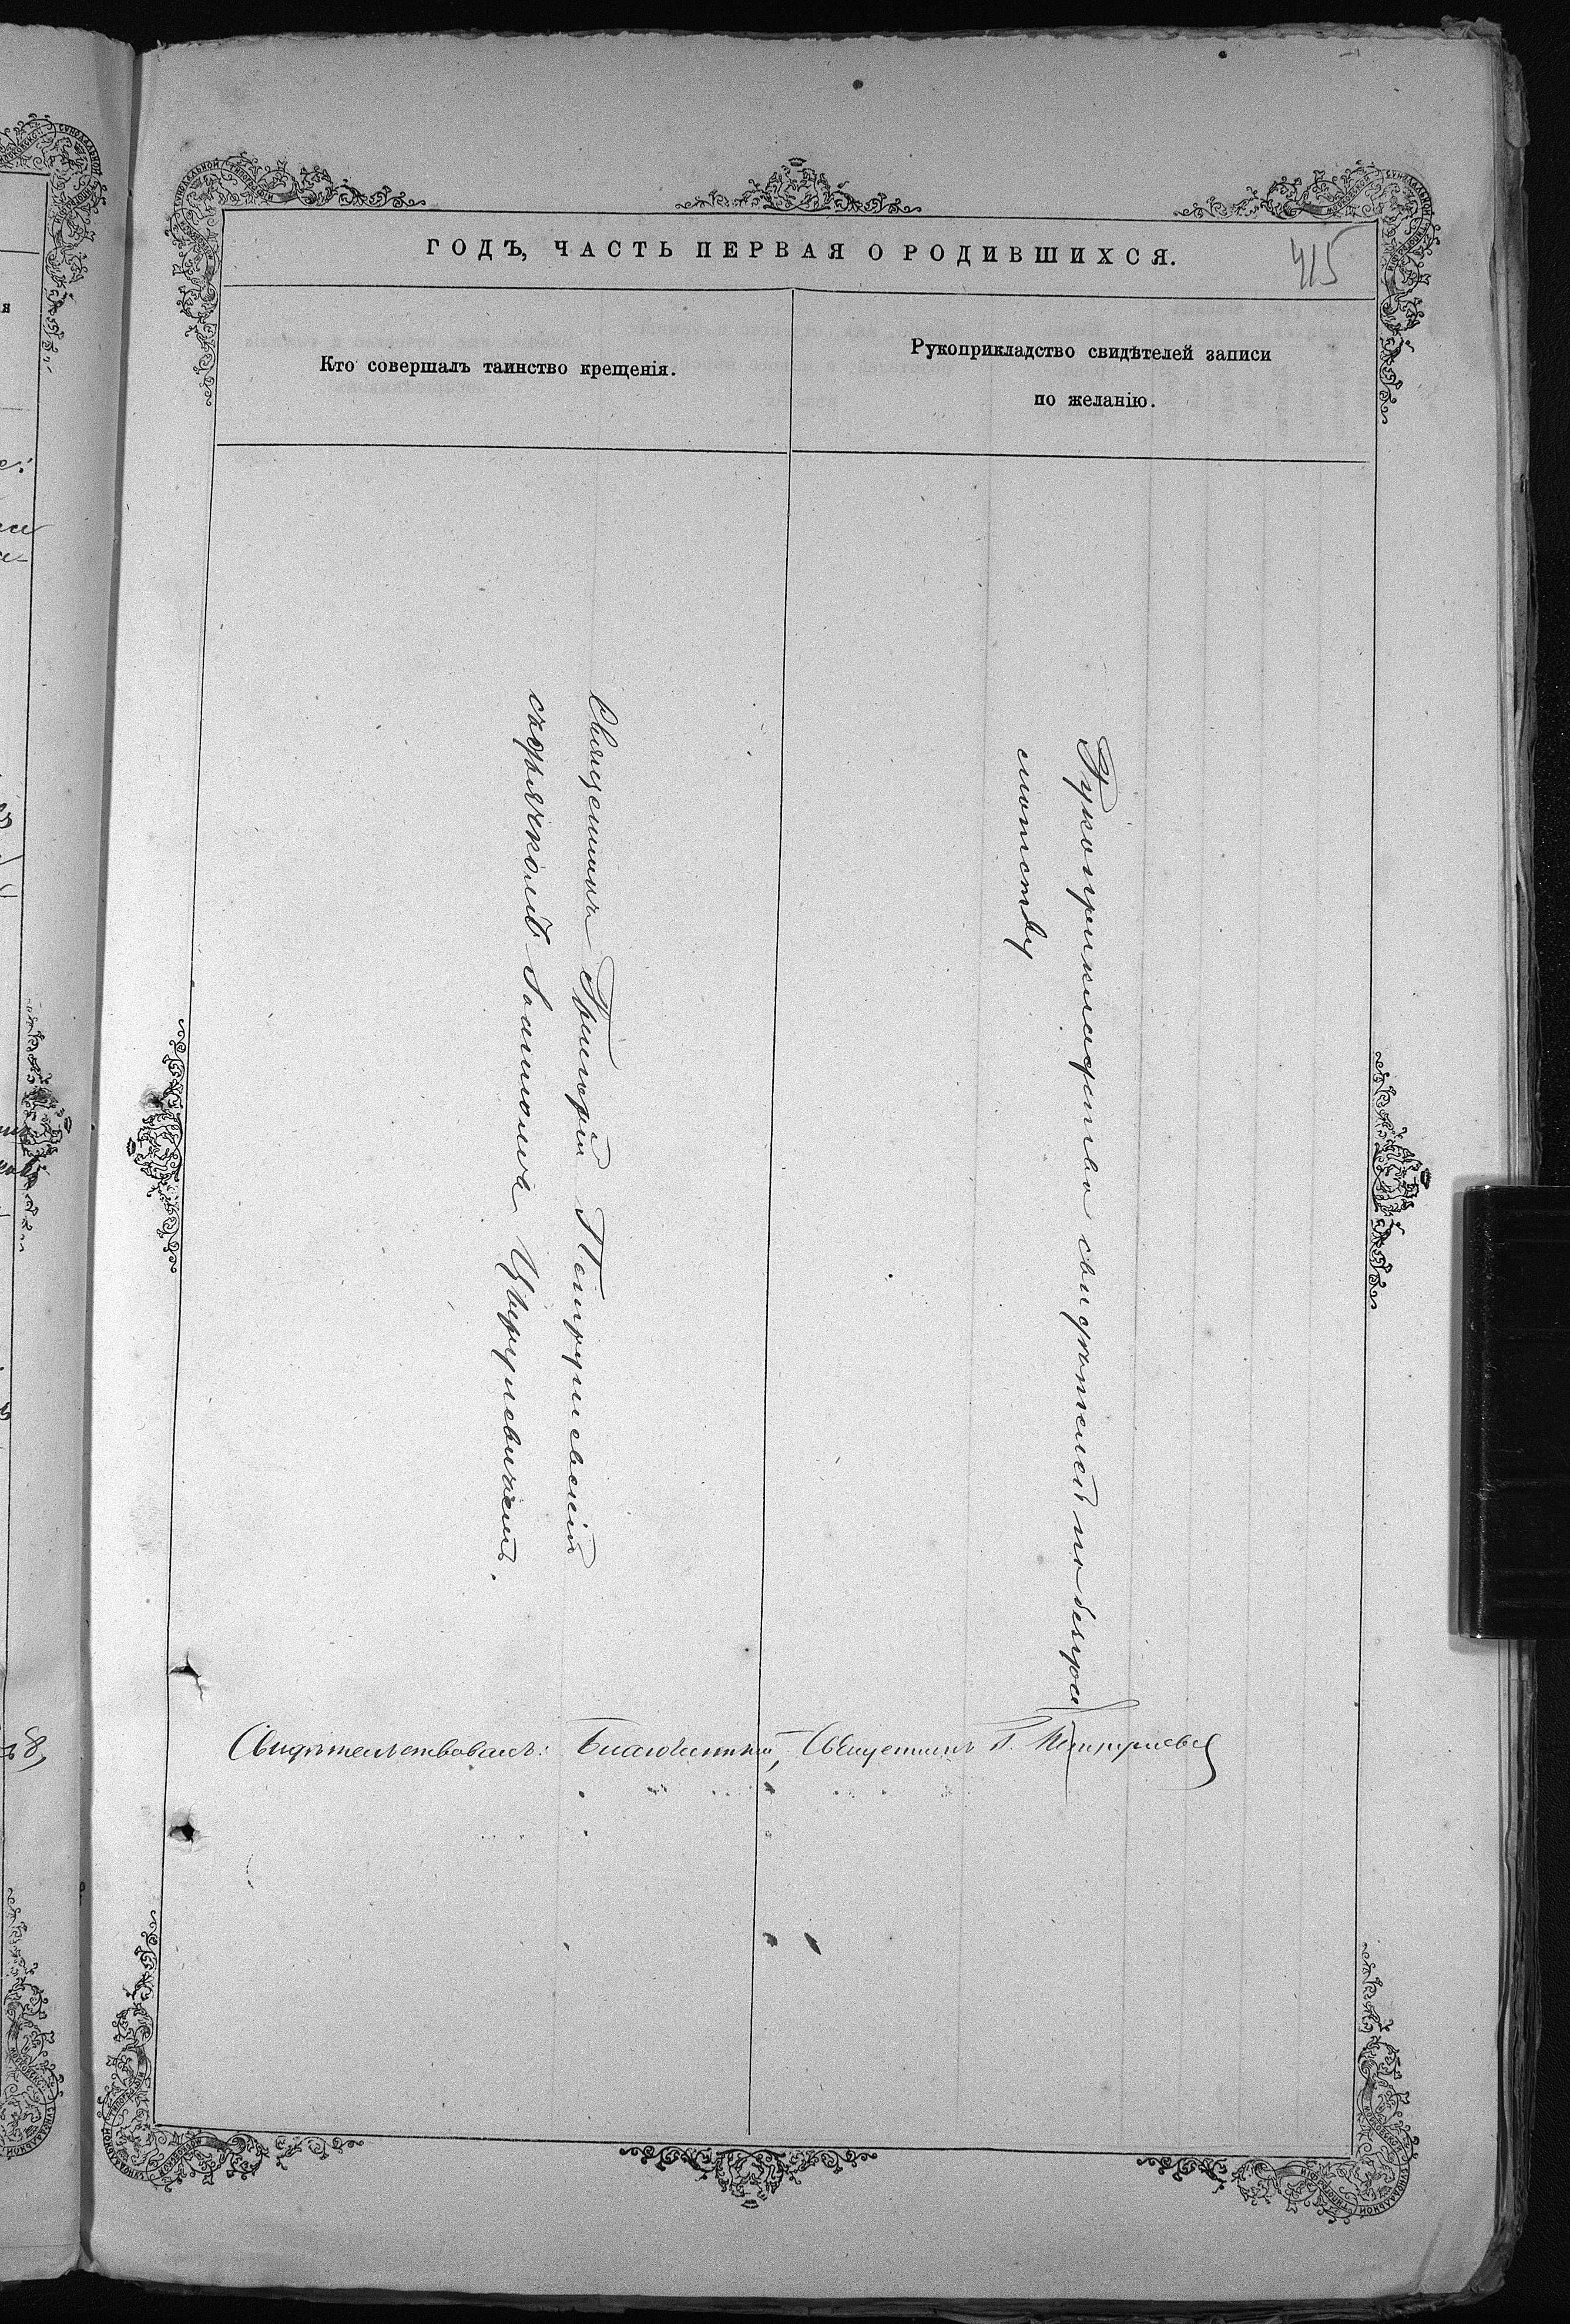 ГОДЪ, ЧАСТЬ ПЕРВАЯ О РОДИВШИХСЯ.
415
Кто совершалъ таинство крещенія.
Рукоприкладство свидѣтелей записи
по желанію.
Священникъ Григорій Петрушевскій
съ дьячкомъ Іаниномъ Цверулевичемъ.
Рукоприкладство свидѣтелей по безгра
мотству
Свидѣтельствовалъ: Благочинный, Священникъ Г.